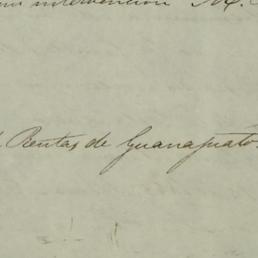 intervención M.
Rentas de Guanajuato.